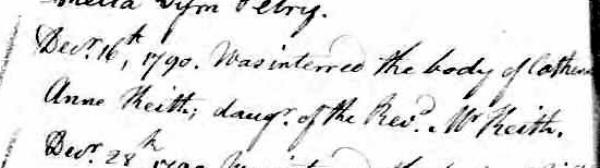 Petry.
Decr. 16th, 1790. Was interred the body of Cathe
Anne Keith; daugr. of the Revd. Mr Keith.
Decr. 28th 1790